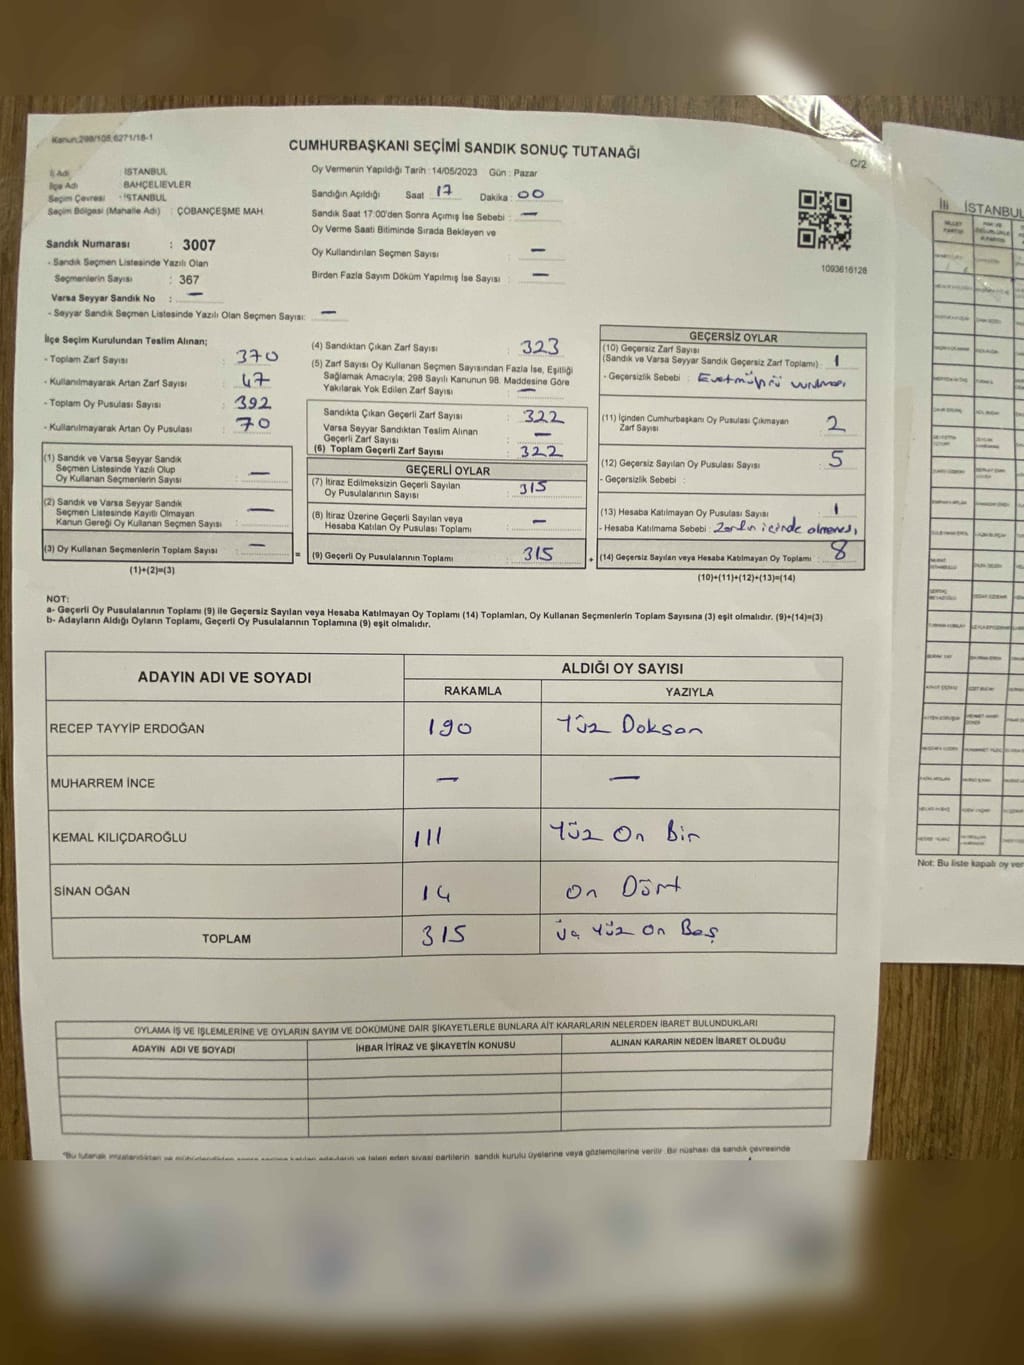 Kanun:298/105,6271/18-1
CUMHURBAŞKANI SEÇİMİ SANDIK SONUÇ TUTANAĞI
C/2
İl Adı İSTANBUL
İlçe Adı : BAHÇELİEVLER
Seçim Çevresi : İSTANBUL
Seçim Bölgesi (Mahalle Adı) : ÇOBANÇEŞME MAH.
Sandık Numarası : 3007
- Sandık Seçmen Listesinde Yazılı Olan
Seçmenlerin Sayısı : 367
Varsa Seyyar Sandık No : —
- Seyyar Sandık Seçmen Listesinde Yazılı Olan Seçmen Sayısı: —
Oy Vermenin Yapıldığı Tarih : 14/05/2023 Gün : Pazar
Sandığın Açıldığı Saat 17 Dakika : 00
Sandık Saat 17:00'den Sonra Açımış İse Sebebi : —
Oy Verme Saati Bitiminde Sırada Bekleyen ve
Oy Kullandırılan Seçmen Sayısı : —
Birden Fazla Sayım Döküm Yapılmış İse Sayısı : —
1093616128
İlçe Seçim Kurulundan Teslim Alınan;
- Toplam Zarf Sayısı : 370
- Kullanılmayarak Artan Zarf Sayısı : 47
- Toplam Oy Pusulası Sayısı : 392
- Kullanılmayarak Artan Oy Pusulası : 70
(1) Sandık ve Varsa Seyyar Sandık
Seçmen Listesinde Yazılı Olup
Oy Kullanan Seçmenlerin Sayısı : —
(2) Sandık ve Varsa Seyyar Sandık
Seçmen Listesinde Kayıtlı Olmayan
Kanun Gereği Oy Kullanan Seçmen Sayısı : —
(3) Oy Kullanan Seçmenlerin Toplam Sayısı : —
(1)+(2)=(3)
(4) Sandıktan Çıkan Zarf Sayısı : 323
(5) Zarf Sayısı Oy Kullanan Seçmen Sayısından Fazla İse, Eşitliği
Sağlamak Amacıyla; 298 Sayılı Kanunun 98. Maddesine Göre
Yakılarak Yok Edilen Zarf Sayısı : —
Sandıkta Çıkan Geçerli Zarf Sayısı : 322
Varsa Seyyar Sandıktan Teslim Alınan
Geçerli Zarf Sayısı : —
(6) Toplam Geçerli Zarf Sayısı : 322
GEÇERLİ OYLAR
(7) İtiraz Edilmeksizin Geçerli Sayılan
Oy Pusulalarının Sayısı : 315
(8) İtiraz Üzerine Geçerli Sayılan veya
Hesaba Katılan Oy Pusulası Toplamı : —
= (9) Geçerli Oy Pusulalarının Toplamı : 315
GEÇERSİZ OYLAR
(10) Geçersiz Zarf Sayısı
(Sandık ve Varsa Seyyar Sandık Geçersiz Zarf Toplamı) : 1
- Geçersizlik Sebebi : Evet mührü vurulması
(11) İçinden Cumhurbaşkanı Oy Pusulası Çıkmayan
Zarf Sayısı : 2
(12) Geçersiz Sayılan Oy Pusulası Sayısı : 5
- Geçersizlik Sebebi :
(13) Hesaba Katılmayan Oy Pusulası Sayısı : 1
- Hesaba Katılmama Sebebi : Zarfın içinde olmaması
+ (14) Geçersiz Sayılan veya Hesaba Katılmayan Oy Toplamı : 8
(10)+(11)+(12)+(13)=(14)
NOT:
a- Geçerli Oy Pusulalarının Toplamı (9) ile Geçersiz Sayılan veya Hesaba Katılmayan Oy Toplamı (14) Toplamları, Oy Kullanan Seçmenlerin Toplam Sayısına (3) eşit olmalıdır. (9)+(14)=(3)
b- Adayların Aldığı Oyların Toplamı, Geçerli Oy Pusulalarının Toplamına (9) eşit olmalıdır.
ADAYIN ADI VE SOYADI ALDIĞI OY SAYISI
RAKAMLA YAZIYLA
RECEP TAYYİP ERDOĞAN 190 Yüz Doksan
MUHARREM İNCE — —
KEMAL KILIÇDAROĞLU 111 Yüz On Bir
SİNAN OĞAN 14 On Dört
TOPLAM 315 Üç Yüz On Beş
OYLAMA İŞ VE İŞLEMLERİNE VE OYLARIN SAYIM VE DÖKÜMÜNE DAİR ŞİKAYETLERLE BUNLARA AİT KARARLARIN NELERDEN İBARET BULUNDUKLARI
ADAYIN ADI VE SOYADI İHBAR İTİRAZ VE ŞİKAYETİN KONUSU ALINAN KARARIN NEDEN İBARET OLDUĞU
sandık kurulu üyelerine veya gözlemcilerine verilir. Bir nüshası da sandık çevresinde
İli İSTANBUL
Not: Bu liste kapalı oy ver